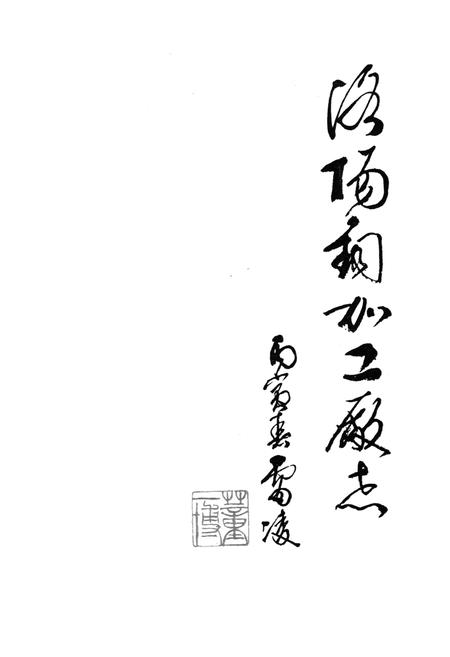 洛阳铜加工廠志
丙寅春雷凌
董博